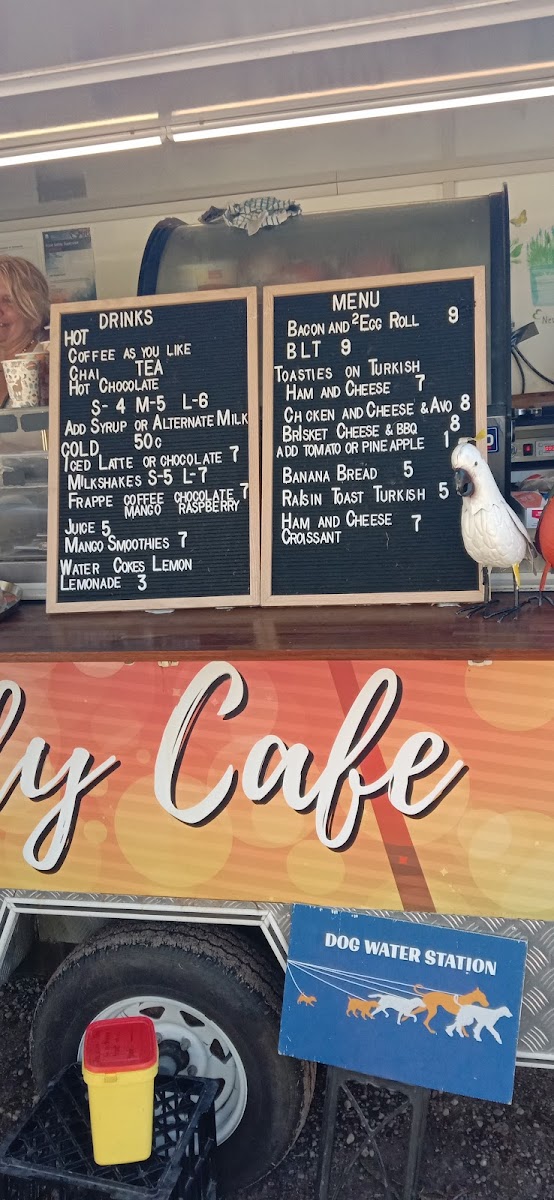 DRINKS
HOT
COFFEE AS YOU LIKE
CHAI TEA
HOT CHOCOLATE
S- 4 M-5 L-6
ADD SYRUP OR ALTERNATE MILK
50c
COLD
ICED LATTE OR CHOCOLATE 7
MILKSHAKES S-5 L-7
FRAPPE COFFEE CHOCOLATE 7
MANGO RASPBERRY
JUICE 5
MANGO SMOOTHIES 7
WATER COKES LEMON
LEMONADE 3
MENU
BACON AND 2 EGG ROLL 9
BLT 9
TOASTIES ON TURKISH
HAM AND CHEESE 7
CHICKEN AND CHEESE & AVO 8
BRISKET CHEESE & BBQ 8
ADD TOMATO OR PINEAPPLE 1
BANANA BREAD 5
RAISIN TOAST TURKISH 5
HAM AND CHEESE 7
CROISSANT
ly Cafe
DOG WATER STATION